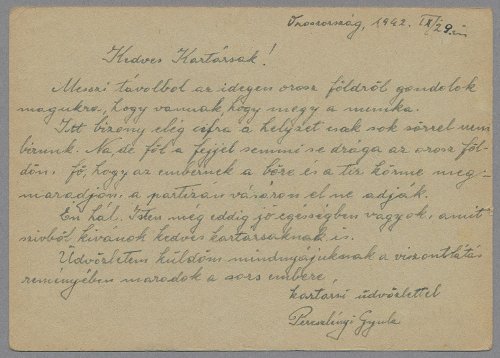 Oroszország, 1942. IX/29.én
Kedves Kartársak!
Messzi távolból az idegen orosz földről gondolok
magukra, hogy vannak, hogy megy a munka.
Itt bizony elég cifra a helyzet csak sok sörrel nem
bírunk. Na, de föl a fejjel semmi se drága az orosz föl-
dön, fő, hogy az embernek a bőre és a tíz körme meg-
maradjon, a partizán vásáron el ne adják.
Én hál. Isten meg eddig jó egészségben vagyok, amit
szivből kívánok kedves kartársaknak is.
Üdvözletem küldöm mindnyájuknak a viszontlátás
reményében maradok a sors embere
kartársi üdvözlettel
Pereszlényi Gyula